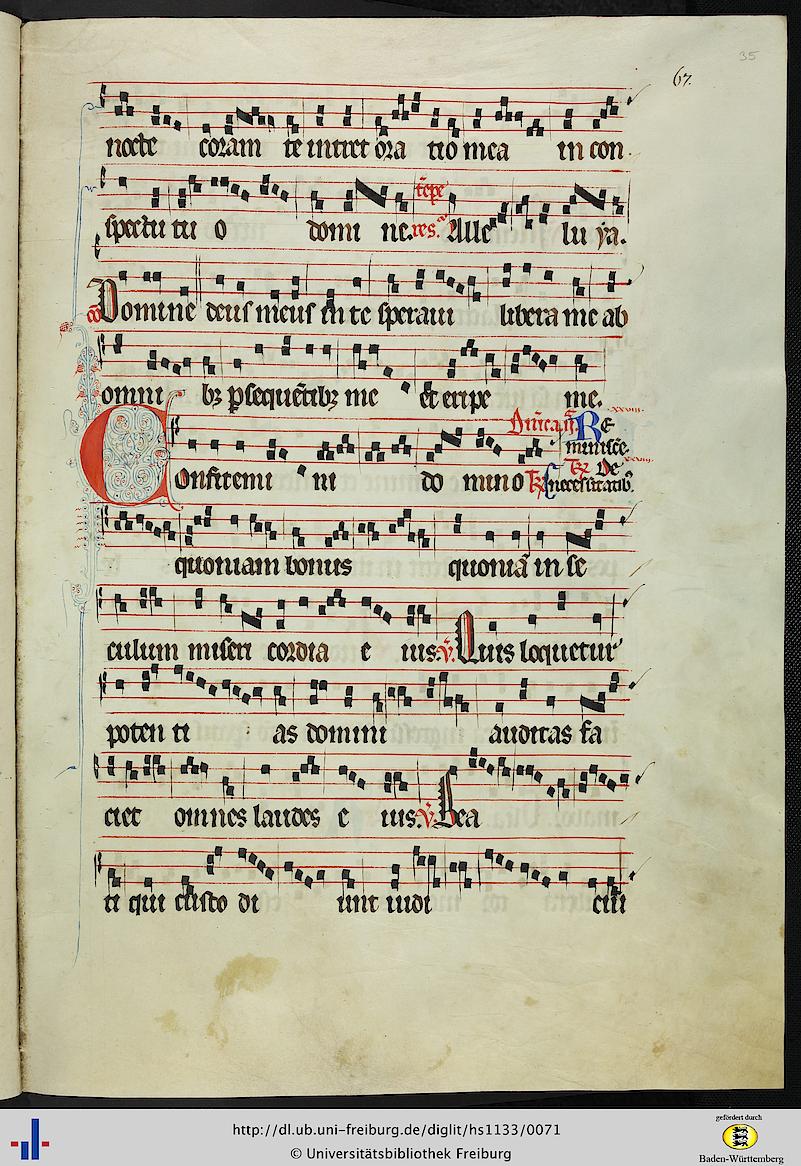 35
67.
nocte coram te intret ora tio mea in con
spectu tu o domi ne. Alle lu ya.
Domine deus meus in te speraui libera me ab
omni bꝫ ꝑsequētibꝫ me et eripe me.
RE
miniscē.
Confitemi ni do mino De
necessitatibꝰ.
quoniam bonus quoniā in se
culum miseri cordia e ius. v̄. Quis loquetur
poten ti as domini auditas fa
ciet omnes laudes e ius. v̄. Bea
ti qui custo di unt iudi cium
http://dl.ub.uni-freiburg.de/diglit/hs1133/0071
© Universitätsbibliothek Freiburg
gefördert durch
Baden-Württemberg